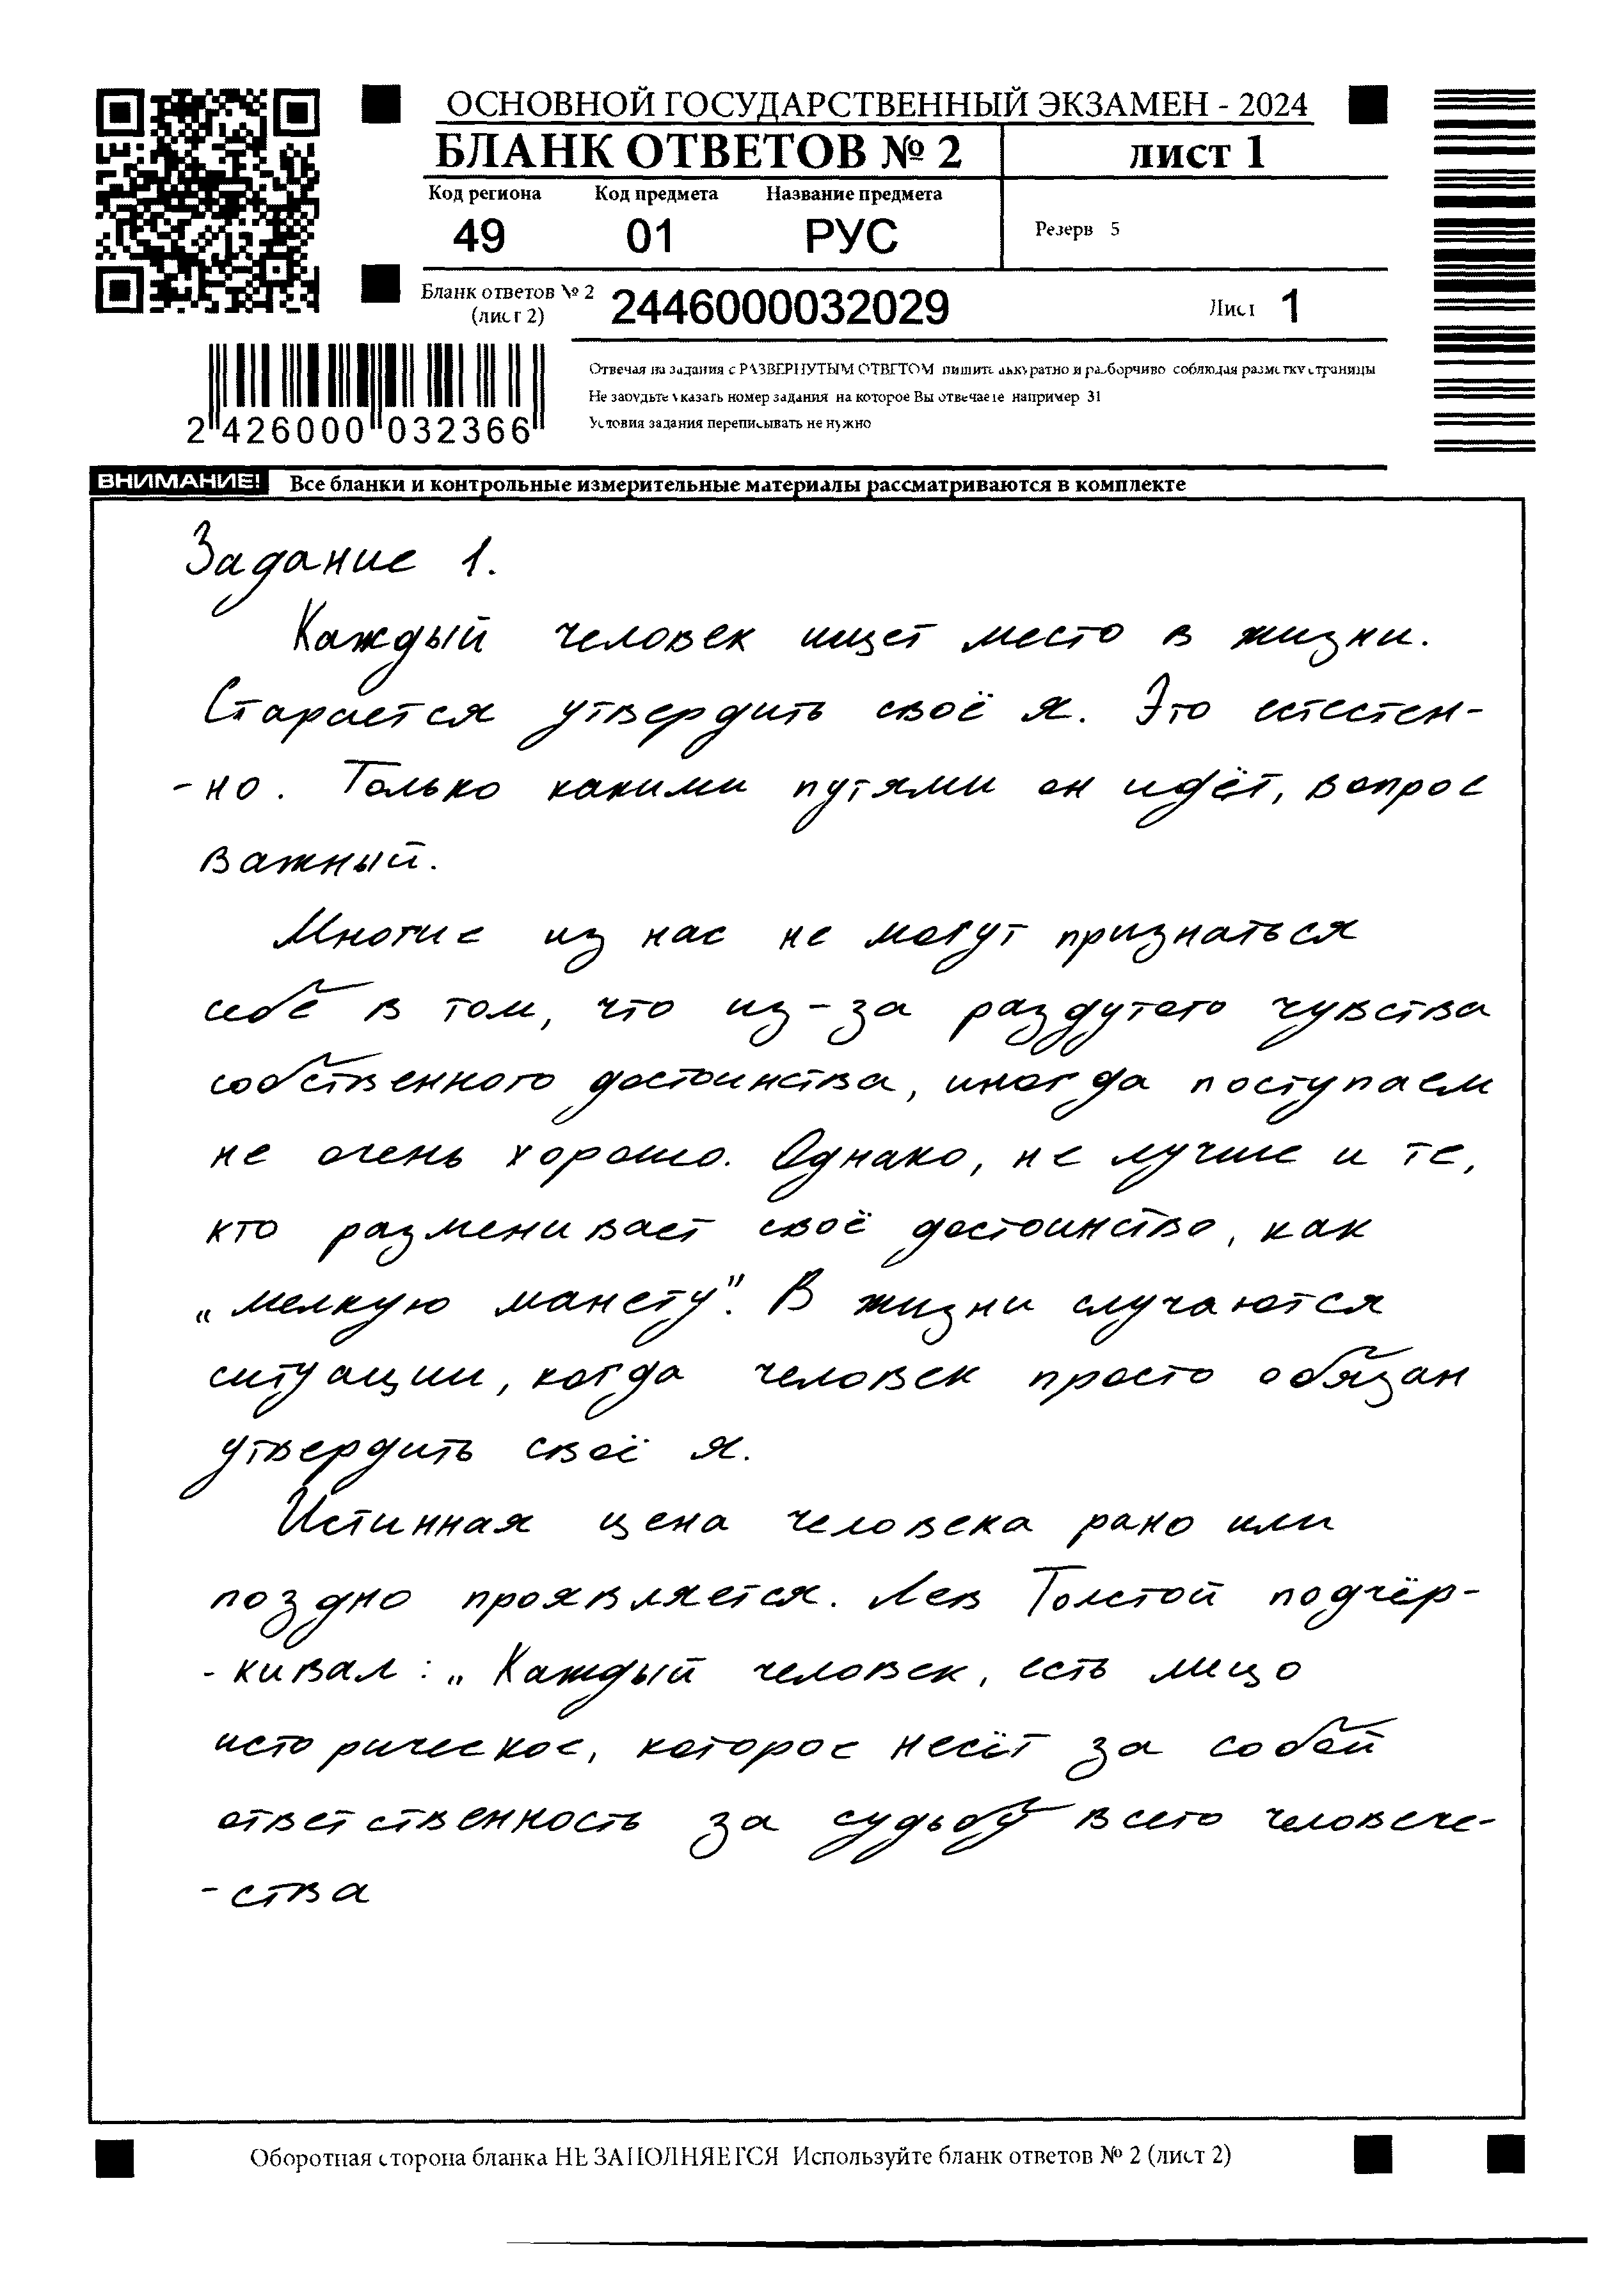 ОСНОВНОЙ ГОСУДАРСТВЕННЫЙ ЭКЗАМЕН - 2024
БЛАНК ОТВЕТОВ № 2
лист 1
Код региона Код предмета Название предмета
49 01 РУС
Резерв 5
Бланк ответов № 2
(лист 2)
2446000032029
Лист 1
2 426000 032366
Отвечая на задания с РАЗВЕРНУТЫМ ОТВЕТОМ пишите аккуратно и разборчиво соблюдая разметку страницы
Не забудьте указать номер задания на которое Вы отвечаете например 31
Условия задания переписывать не нужно
ВНИМАНИЕ! Все бланки и контрольные измерительные материалы рассматриваются в комплекте
Задание 1.
Каждый человек ищет место в жизни.
Старается утвердить своё я. Это естестен-
-но. Только какими путями он идёт, вопрос
важный.
Многие из нас не могут признаться
себе в том, что из-за раздутого чувства
собственного достоинства, иногда поступаем
не очень хорошо. Однако, не лучше и те,
кто разменивает своё достоинство, как
„мелкую монету". В жизни случаются
ситуации, когда человек просто обязан
утвердить своё я.
Истинная цена человека рано или
поздно проявляется. Лев Толстой подчёр-
-кивал: „Каждый человек, есть лицо
историческое, которое несёт за собой
ответственность за судьбу всего человече-
-ства
Оборотная сторона бланка НЕ ЗАПОЛНЯЕТСЯ Используйте бланк ответов № 2 (лист 2)